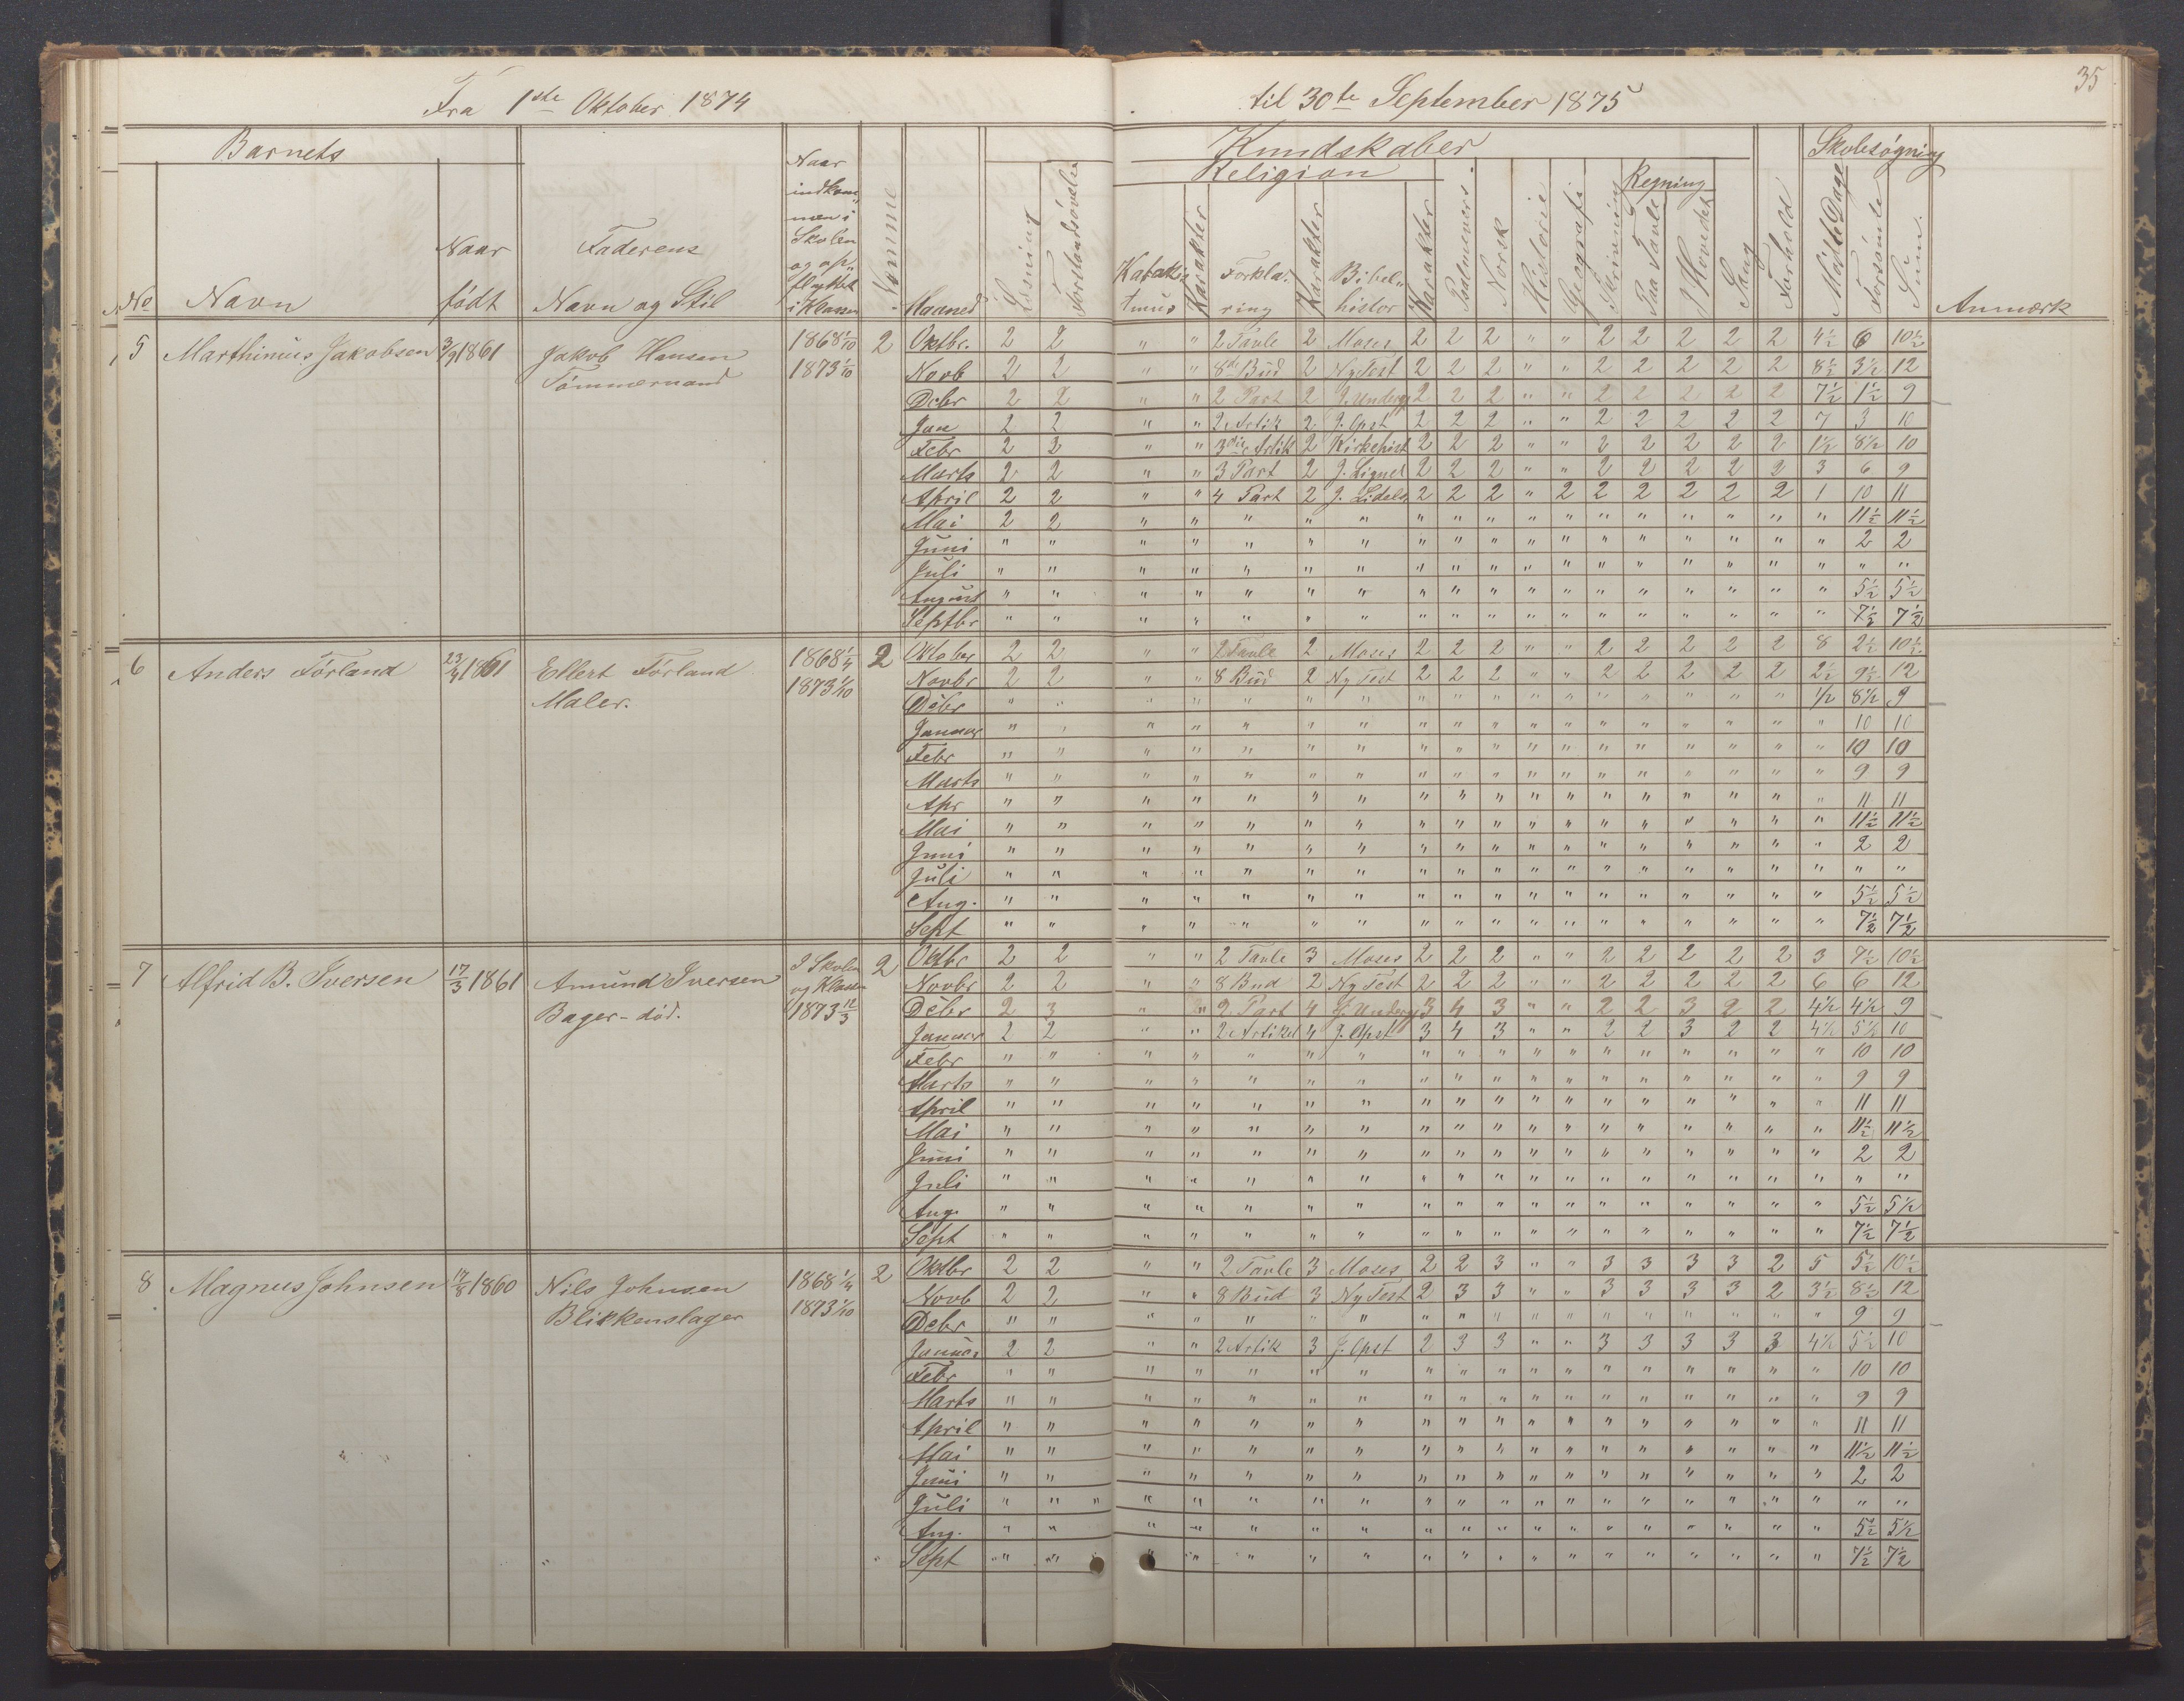 35
Fra 1ste Oktober 1874 til 30te September 1875
Barnets Kundskaber Skolesøgning
Religion Regning
No Navn Naar født Faderens Navn og Stil Naar indkommen i Skolen og opflyttet i Klassen Maaned Læsning Forstandsøvelse Katakismus Karakter Forklaring Karakter Bibelhistor Karakter Psalmevers Norsk Historie Geografi Skrivning Paa Tavle I Hovedet Sang Forhold Mødte Dage Forsømte Sum. Anmærk
5 Marthinius Jakobsen 3/9 1861 Jakob Hansen 1868 1/10 2 Oktbr. 2 2 " " 2 Tavle 2 Moses 2 2 2 " " 2 2 2 2 2 4½ 6 10½
Tømmermand 1873 1/10 Novb 2 2 " " 8de Bud 2 Ny Test 2 2 2 " " 2 2 2 2 2 8½ 3½ 12
Debr 2 2 " " 2 Part 2 J. Underg 2 2 2 " " 2 2 2 2 2 7½ 1½ 9
Jan 2 2 " " 2 Artik 2 J. Opst 2 2 2 " " 2 2 2 2 2 7 3 10
Febr 2 3 " " 3die Artik 2 Kirkehist 2 2 2 " " 2 2 2 2 2 1½ 8½ 10
Marts 2 2 " " 3 Part 2 J. Lignel 2 2 2 " " 2 2 2 2 2 3 6 9
April 2 2 " " 4 Part 2 J. Lidels 2 2 2 " 2 2 2 2 2 2 1 10 11
Mai 2 2 " " " " " " " " " " " " " " " " 11½ 11½
Juni " " " " " " " " " " " " " " " " " " 2 2
Juli " " " " " " " " " " " " " " " " " " " "
August " " " " " " " " " " " " " " " " " " 5½ 5½
Septbr " " " " " " " " " " " " " " " " " " 7½ 7½
6 Anders Førland 23/4 1861 Ellert Førland 1868 1/4 2 Oktober 2 2 " " 2 Tavle 2 Moses 2 2 2 " " 2 2 2 2 2 8 2½ 10½
Maler. 1873 1/10 Novbr 2 2 " " 8 Bud 2 Ny Test 2 2 2 " " 2 2 2 2 2 2½ 9½ 12
Debr " " " " " " " " " " " " " " " " " ½ 8½ 9
Januar " " " " " " " " " " " " " " " " " " 10 10
Febr " " " " " " " " " " " " " " " " " " 10 10
Marts " " " " " " " " " " " " " " " " " " 9 9
Apr " " " " " " " " " " " " " " " " " " 11 11
Mai " " " " " " " " " " " " " " " " " " 11½ 11½
Juni " " " " " " " " " " " " " " " " " " 2 2
Juli " " " " " " " " " " " " " " " " " " " "
Aug. " " " " " " " " " " " " " " " " " " 5½ 5½
Sept " " " " " " " " " " " " " " " " " " 7½ 7½
7 Alfrid B. Iversen 17/3 1861 Amund Iversen I Skolen 2 Oktbr 2 2 " " 2 Tavle 3 Moses 2 2 2 " " 2 2 2 2 2 3 7½ 10½
og Klassen Novbr 2 2 " " 8 Bud 2 Ny Test 2 2 2 " " 2 2 2 2 2 6 6 12
Bager - død. 1873 12/3 Debr 2 3 " " 2 Part 4 J. Underg 3 4 3 " " 2 2 3 2 2 4½ 4½ 9
Januar 2 2 " " 2 Artikel 4 J. Opst 3 4 3 " " 2 2 3 2 2 4½ 5½ 10
Febr " " " " " " " " " " " " " " " " " " 10 10
Marts " " " " " " " " " " " " " " " " " " 9 9
April " " " " " " " " " " " " " " " " " " 11 11
Mai " " " " " " " " " " " " " " " " " " 11½ 11½
Juni " " " " " " " " " " " " " " " " " " 2 2
Juli " " " " " " " " " " " " " " " " " " " "
Aug. " " " " " " " " " " " " " " " " " " 5½ 5½
Sept " " " " " " " " " " " " " " " " " " 7½ 7½
8 Magnus Johnsen 1860 Nils Johnsen 1868 1/4 2 Oktbr 2 2 " " 2 Tavle 3 Moses 2 2 3 " " 3 3 3 3 2 5 5½ 10½
Blikkenslager 1873 1/10 Novb 2 2 " " 8 Bud 3 Ny Test 2 3 3 " " 3 3 3 3 2 3½ 8½ 12
Debr " " " " " " " " " " " " " " " " " " 9 9
Januar 2 2 " " 2 Artik 3 J. Opst 2 3 3 " " 3 3 3 3 3 4½ 5½ 10
Febr " " " " " " " " " " " " " " " " " " 10 10
Marts " " " " " " " " " " " " " " " " " " 9 9
April " " " " " " " " " " " " " " " " " " 11 11
Mai " " " " " " " " " " " " " " " " " " 11½ 11½
Juni " " " " " " " " " " " " " " " " " " 2 2
Juli " " " " " " " " " " " " " " " " " " " "
Aug. " " " " " " " " " " " " " " " " " " 5½ 5½
Sept " " " " " " " " " " " " " " " " " " 7½ 7½